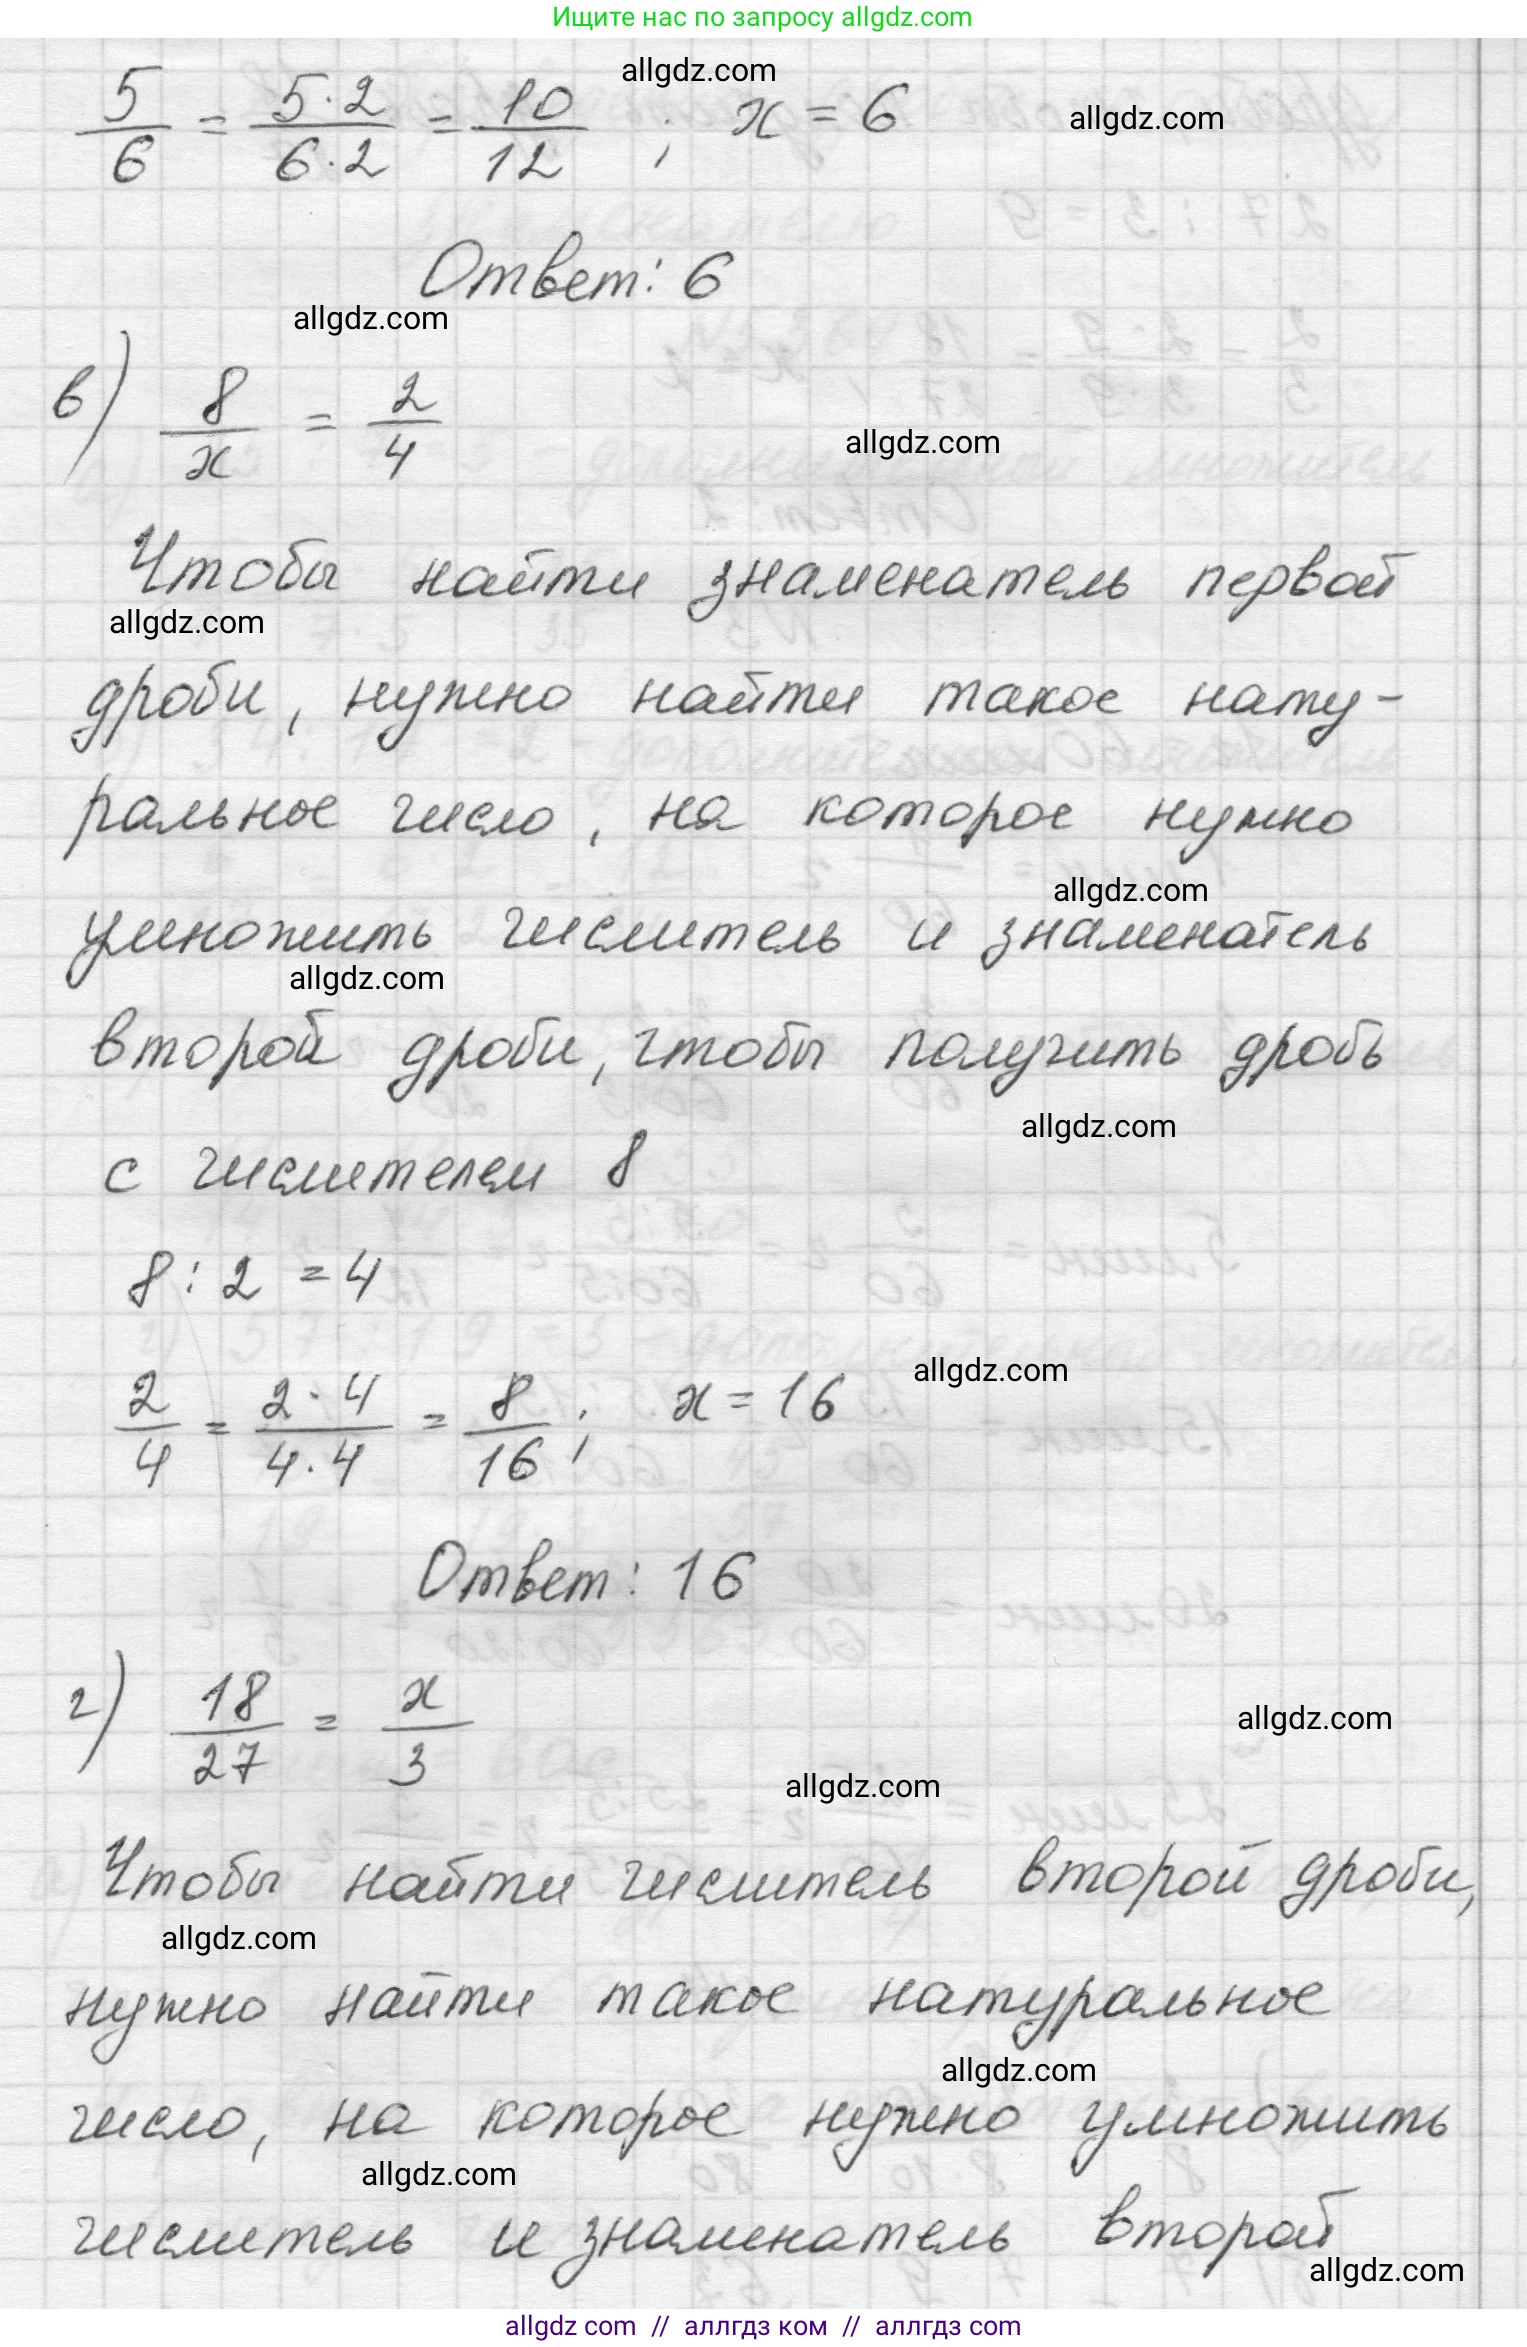 Ищите нас по запросу allgdz.com
allgdz.com
5/6 = 5·2/6·2 = 10/12 ; x = 6
allgdz.com
Ответ: 6
allgdz.com
в) 8/x = 2/4
allgdz.com
Чтобы найти знаменатель первой
allgdz.com
дроби, нужно найти такое нату-
ральное число, на которое нужно
allgdz.com
умножить числитель и знаменатель
allgdz.com
второй дроби, чтобы получить дробь
allgdz.com
с числителем 8
8 : 2 = 4
allgdz.com
2/4 = 2·4/4·4 = 8/16 ; x = 16
Ответ: 16
г) 18/27 = x/3
allgdz.com
allgdz.com
Чтобы найти числитель второй дроби,
allgdz.com
нужно найти такое натуральное
allgdz.com
число, на которое нужно умножить
allgdz.com
числитель и знаменатель второй
allgdz.com
allgdz com // аллгдз ком // аллгдз com